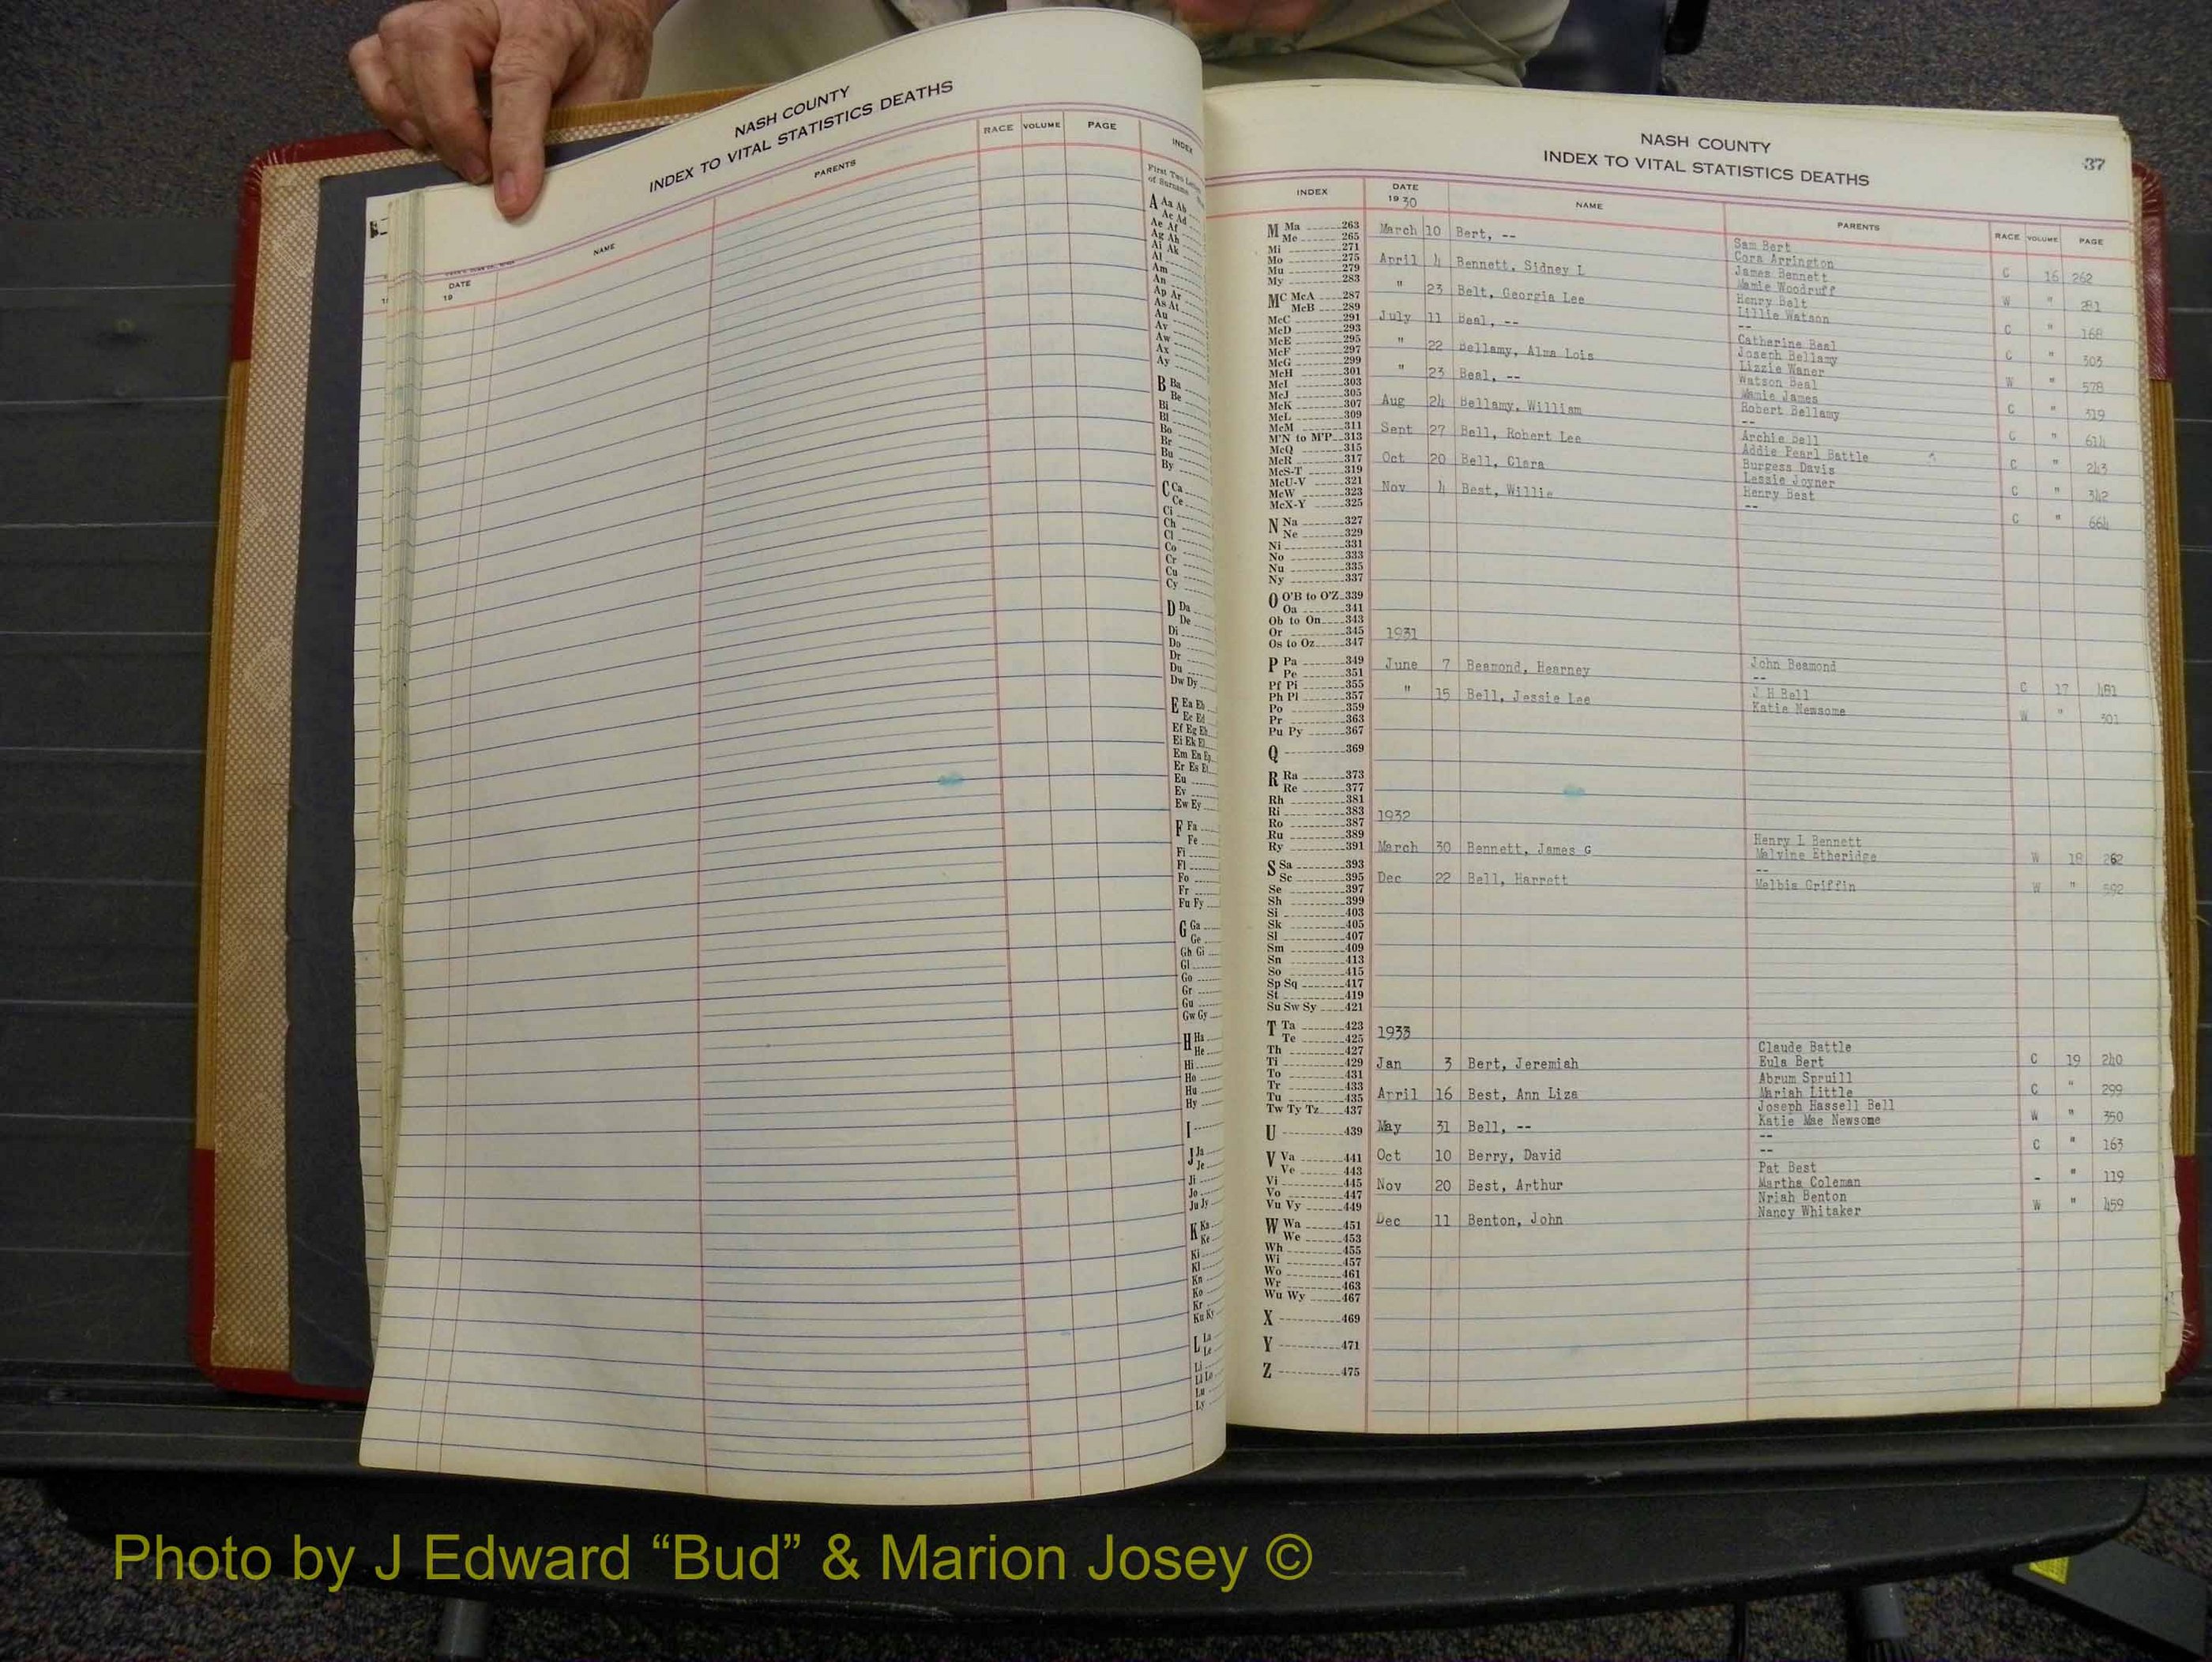 NASH COUNTY
INDEX TO VITAL STATISTICS DEATHS
DATE
19
NAME
PARENTS
RACE
VOLUME
PAGE
INDEX
First Two Letters
of Surname
A Aa Ab
Ac Ad
Ae Af
Ag Ah
Ai Ak
Al
Am
An
Ap Ar
As At
Au
Av
Aw
Ax
Ay
B Ba
Be
Bi
Bl
Bo
Br
Bu
By
C Ca
Ce
Ci
Ch
Cl
Co
Cr
Cu
Cy
D Da
De
Di
Do
Dr
Du
Dw Dy
E Ea Eb
Ec Ed
Ef Eg Eh
Ei Ek El
Em En Ep
Er Es Et
Eu
Ev
Ew Ey
F Fa
Fe
Fi
Fl
Fo
Fr
Fu Fy
G Ga
Ge
Gh Gi
Gl
Go
Gr
Gu
Gw Gy
H Ha
He
Hi
Ho
Hu
Hy
I
J Ja
Je
Ji
Jo
Ju Jy
K Ka
Ke
Ki
Kl
Kn
Ko
Kr
Ku Ky
L La
Le
Li
Ll Lo
Lu
Ly
NASH COUNTY
INDEX TO VITAL STATISTICS DEATHS
37
INDEX
DATE
19 30
NAME
PARENTS
RACE VOLUME PAGE
M Ma 263
Me 265
Mi 271
Mo 275
Mu 279
My 283
Mc McA 287
McB 289
McC 291
McD 293
McE 295
McF 297
McG 299
McH 301
McI 303
McJ 305
McK 307
McL 309
McM 311
M'N to M'P 313
McQ 315
McR 317
McS-T 319
McU-V 321
McW 323
McX-Y 325
N Na 327
Ne 329
Ni 331
No 333
Nu 335
Ny 337
O O'B to O'Z 339
Oa 341
Ob to On 343
Or 345
Os to Oz 347
P Pa 349
Pe 351
Pf Pi 355
Ph Pl 357
Po 359
Pr 363
Pu Py 367
Q 369
R Ra 373
Re 377
Rh 381
Ri 383
Ro 387
Ru 389
Ry 391
S Sa 393
Sc 395
Se 397
Sh 399
Si 403
Sk 405
Sl 407
Sm 409
Sn 413
So 415
Sp Sq 417
St 419
Su Sw Sy 421
T Ta 423
Te 425
Th 427
Ti 429
To 431
Tr 433
Tu 435
Tw Ty Tz 437
U 439
V Va 441
Ve 443
Vi 445
Vo 447
Vu Vy 449
W Wa 451
We 453
Wh 455
Wi 457
Wo 461
Wr 463
Wu Wy 467
X 469
Y 471
Z 475
Sam Bert
March 10 Bert, -- Cora Arrington C 16 262
James Bennett
April 4 Bennett, Sidney L Mamie Woodruff W " 281
Henry Belt
" 23 Belt, Georgia Lee Lillie Watson C " 168
--
July 11 Beal, -- Catherine Beal C " 303
Joseph Bellamy
" 22 Bellamy, Alma Lois Lizzie Waner W " 578
Watson Beal
" 23 Beal, -- Mamie James C " 319
Robert Bellamy
Aug 24 Bellamy, William -- C " 614
Archie Bell
Sept 27 Bell, Robert Lee Addie Pearl Battle C " 243
Burgess Davis
Oct 20 Bell, Clara Lessie Joyner C " 342
Henry Best
Nov 4 Best, Willie -- C " 664
1931
John Beamond
June 7 Beamond, Hearney -- C 17 481
J H Bell
" 15 Bell, Jessie Lee Katie Newsome W " 301
1932
Henry L Bennett
March 30 Bennett, James G Malvine Etheridge W 18 262
--
Dec 22 Bell, Harrett Melbia Griffin W " 592
1933
Claude Battle
Jan 3 Bert, Jeremiah Eula Bert C 19 240
Abrum Spruill
April 16 Best, Ann Liza Mariah Little C " 299
Joseph Hassell Bell
May 31 Bell, -- Katie Mae Newsome W " 350
--
Oct 10 Berry, David -- C " 163
Pat Best
Nov 20 Best, Arthur Martha Coleman - " 119
Nriah Benton
Dec 11 Benton, John Nancy Whitaker W " 459
Photo by J Edward “Bud” & Marion Josey ©